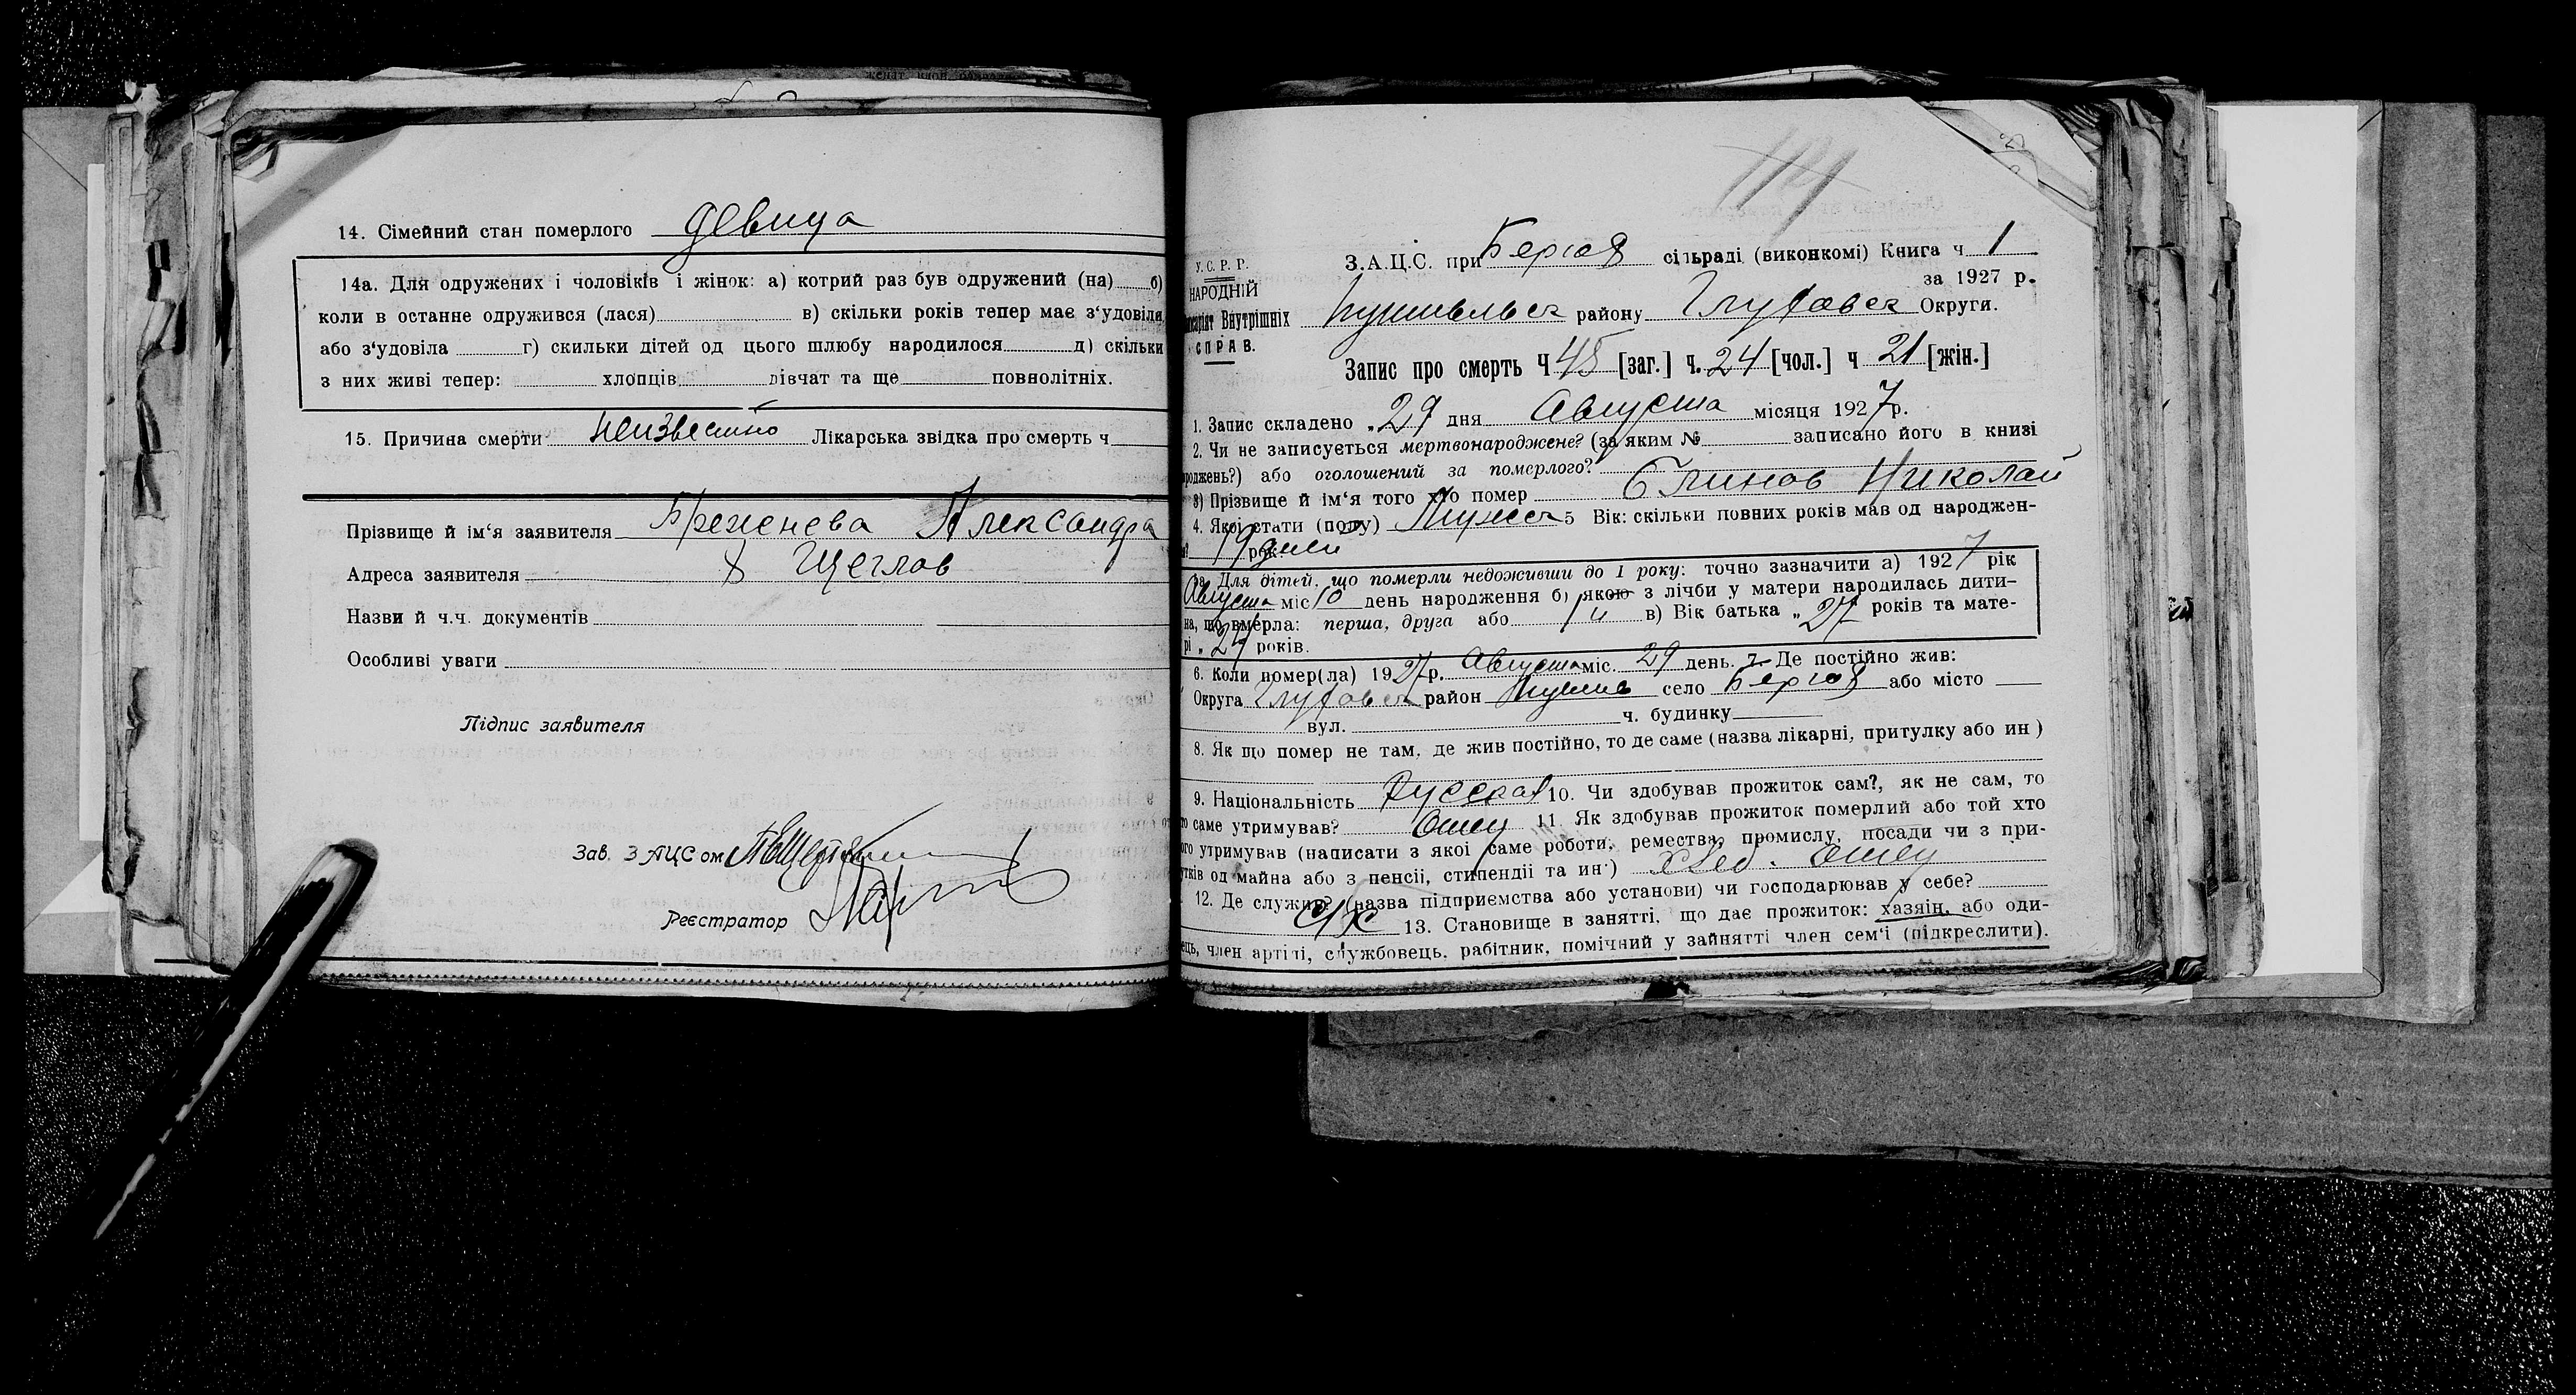 14. Сімейний стан померлого девица
14а. Для одружених і чоловіків і жінок: а) котрий раз був одружений (на) б)
коли в останне одружився (лася) в) скільки років тепер має з‘удовіля
або з‘удовіла г) скильки дітей од цього шлюбу народилося д) скільки
з них живі тепер: хлопців дівчат та ще повнолітніх.
15. Причина смерти неизвестно Лікарська звідка про смерть ч
Прізвище й ім‘я заявителя Александра
Адреса заявителя х Щеглов
Назви й ч.ч. документів
Особливі уваги
Підпис заявителя
Зав. ЗАЦСом
Реєстратор
У.С.Р.Р.
НАРОДНІЙ
Внутрішніх
СПРАВ.
З.А.Ц.С. при сільраді (виконкомі) Книга ч 1
за 1927 р.
району Округи.
Запис про смерть Ч 45 [заг.] ч. 24 [чол.] ч 21 [жін.]
1. Запис складено „29 дня Августа місяця 1927 р.
2. Чи не записується мертвонароджене? (за яким № записано його в книзі
роджень?) або оголошений за померлого?
3) Прізвище й ім‘я того хто помер Николай
4. Якої стати (полу) Мужск 5 Вік: скільки повних років мав од народжен-
19 рок. дней
5а. Для дітей, що померли недоживши до 1 року: точно зазначити а) 1927 рік
Августа міс 10 день народження б) якою з лічби у матери народилась дити-
на, що вмерла: перша, друга або 1 й в) Вік батька „ 27 років та мате-
рі „ 27 років.
6. Коли помер(ла) 1927 р. Августа міс. 29 день. 7. Де постійно жив:
Округа Глуховск район село або місто
вул. ч. будинку
8. Як що помер не там, де жив постійно, то де саме (назва лікарні, притулку або ин )
9. Національність Русская 10. Чи здобував прожиток сам?, як не сам, то
то саме утримував? Отец 11. Як здобував прожиток померлий або той хто
ого утримував (написати з якої саме роботи, ремества, промислу, посади чи з при-
утків од майна або з пенсіі, стипендіі та ин·) хлеб. отец
12. Де служив? (назва підприємства або установи) чи господарював у себе?
с/х 13. Становище в занятті, що дає прожиток: хазяін, або оди-
ець, член артілі, службовець, рабітник, помічний у зайнятті член сем‘і (підкреслити).